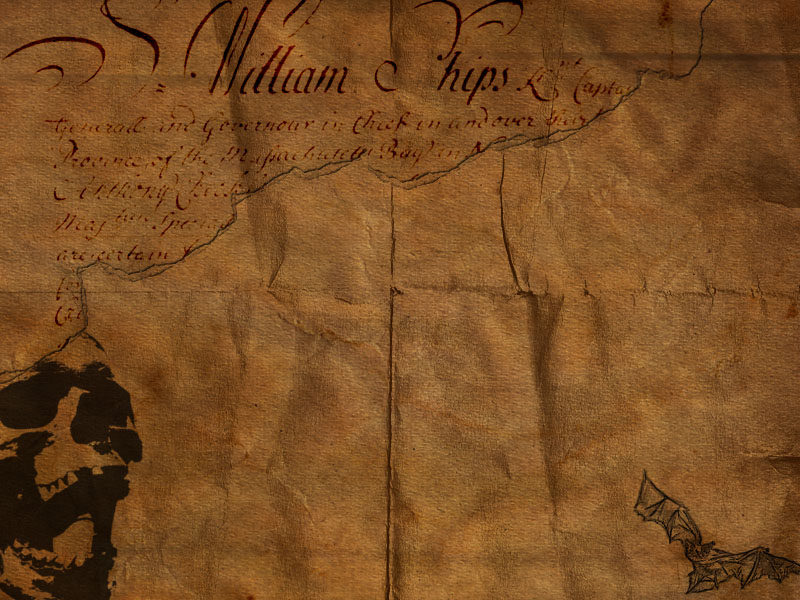 William Phips Knt Capta
Generall and Governour in Chief in and over their
Province of the Massachusetts Bay in N
Anthony Check
Maj ties Special
are certain
for